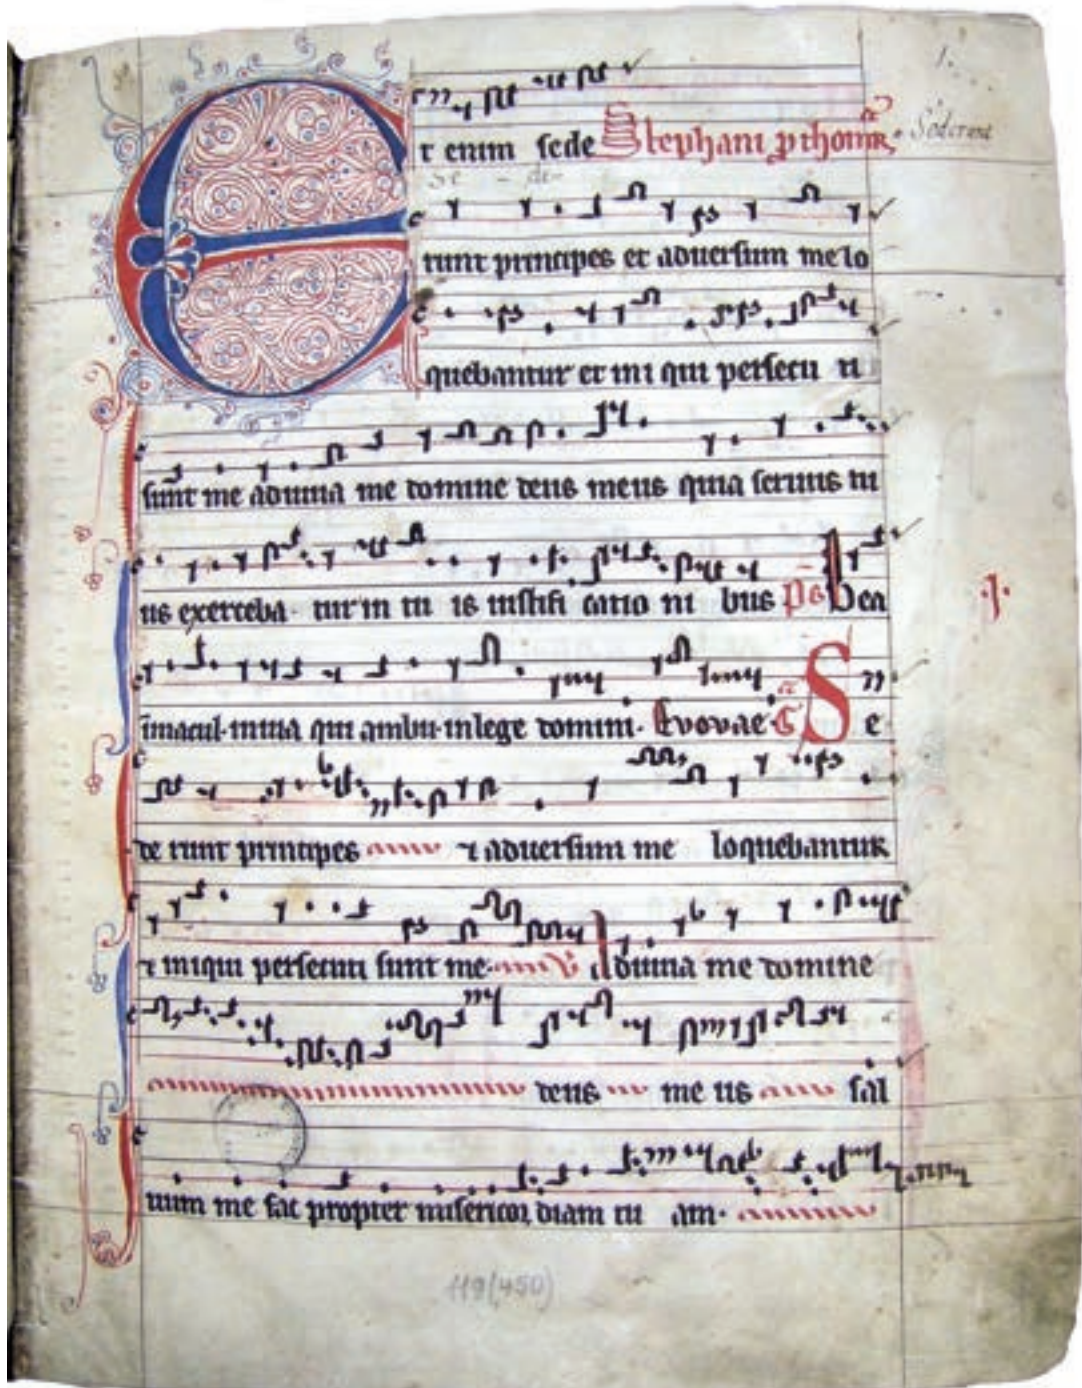 1.
Et enim sede Stephani prthom͞r. Sederunt
Se - de-
runt principes et adversum me lo
quebantur et ini qui persecu ti
sunt me adiuva me domine deus meus quia servus tu
us exerceba. tur in tu is iustifi catio ni bus ps Bea
ti inmacul. in via qui ambu. in lege domini. Evovae. G͞r Se
de runt principes et adversum me loquebantur
et iniqui persecuti sunt me. V Adiuva me domine
deus me us sal
vum me fac propter misericor diam tu am.
119(450)